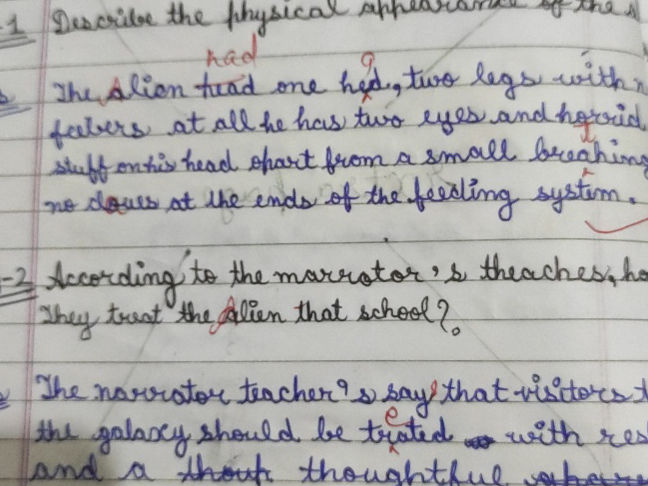 -1 Describe the physical appearance of the
had
The Alien head one hed, two legs with n
feelers at all he has two eyes and horrid
stuff on his head apart from a small breahing
no claues at the ends of the feeding system.
-2 According to the marrotor's theaches, ho
They treat the Alien that school?
The narrotor teacher's says that visitors t
e
the galaxy should be trated with res
and a thouh thoughtful